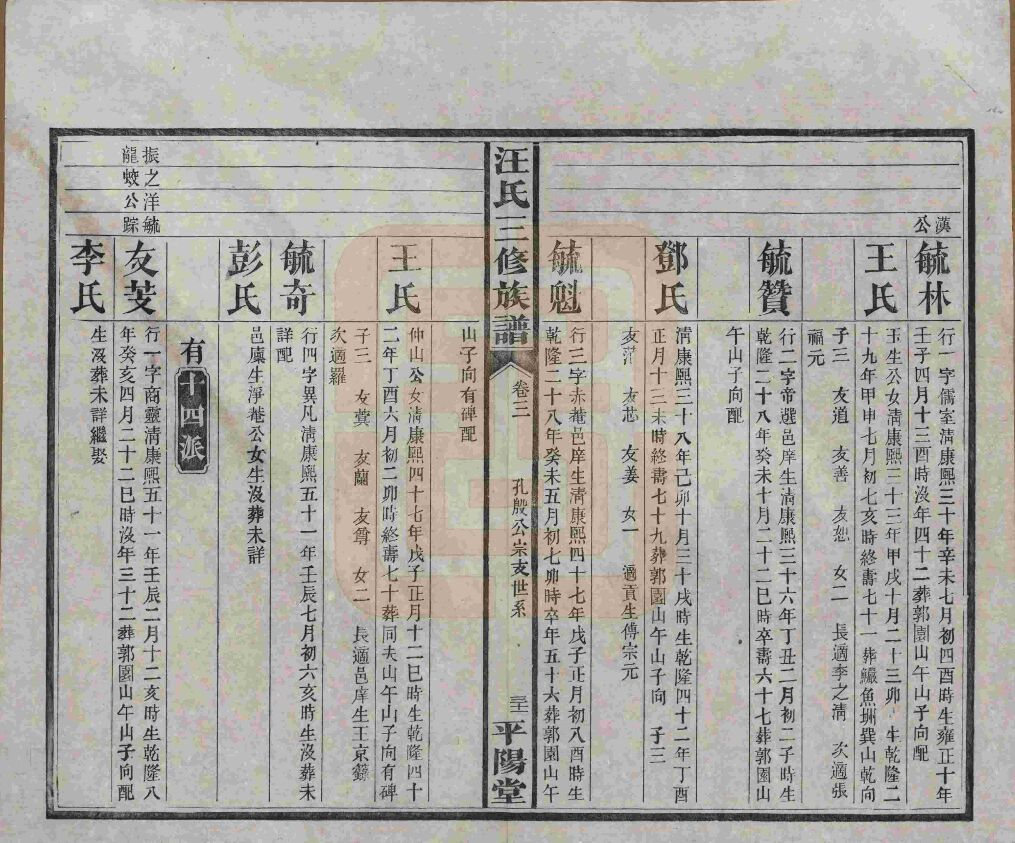 漢公
毓林
行一字儒室清康熙三十年辛未七月初四酉時生雍正十年
壬子四月十三酉時沒年四十二葬郭園山午山子向配
王氏
玉生公女清康熙三十三年甲戌十月二十三卯生乾隆二
十九年甲申七月初七亥時終壽七十一葬魚洲巽山乾向
子三 友道 友善 友恕 女二 長適李之清 次適張
福元
毓贊
行二字帝選邑庠生清康熙三十六年丁丑二月初二子時生
乾隆二十八年癸未十月二十二巳時卒壽六十七葬郭園山
午山子向配
鄧氏
清康熙三十八年己卯十月三十戌時生乾隆四十二年丁酉
正月十三未時終壽七十九葬郭園山午山子向 子三
友 友芯 友姜 女一 適貢生傅宗元
毓魁
行三字赤菴邑庠生清康熙四十七年戊子正月初八酉時生
乾隆二十八年癸未五月初七卯時卒年五十六葬郭園山午
汪氏三修族譜
卷三
孔殷公崇支世系
三十
平陽堂
山子向有碑配
王氏
仲山公女清康熙四十七年戊子正月十二巳時生乾隆四十
二年丁酉六月初二卯時終壽七十葬同夫山午山子向有碑
子三 友蓂 友蘭 友尊 女二 長適邑庠生王京籙
次適羅
毓奇
行四字異凡清康熙五十一年壬辰七月初六亥時生沒葬未
詳配
彭氏
邑廩生淨菴公女生沒葬未詳
有十四派
振之洋毓
龍蛟公踪
友芰
行一字商靈清康熙五十一年壬辰二月十二亥時生乾隆八
年癸亥四月二十二巳時沒年三十二葬郭園山午山子向配
李氏
生沒葬未詳繼娶